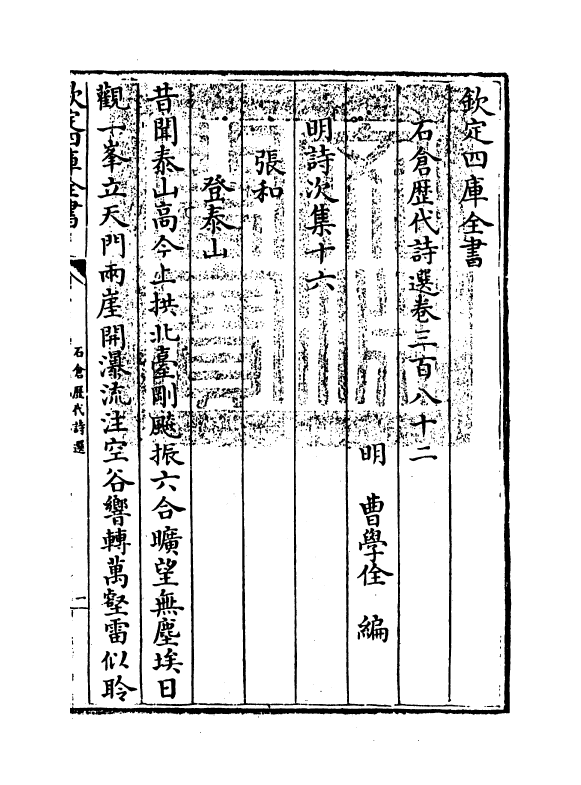 欽定四庫全書
石倉歴代詩選卷三百八十二
明 曹學佺 編
明詩次集十六
張和
登泰山
昔聞泰山高今上拱北臺剛飈振六合曠望無塵埃日
觀一峯立天門兩崖開瀑流注空谷響轉萬壑雷似聆
欽定四庫全書
石倉歴代詩選